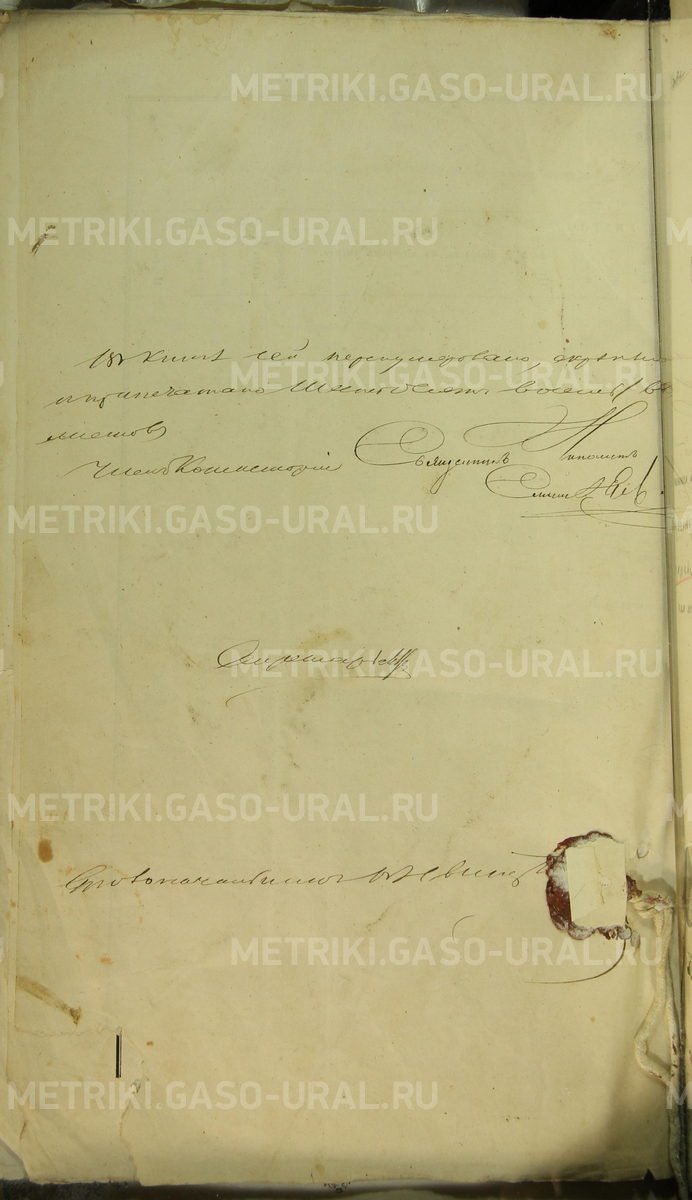 METRIKI.GASO-URAL.RU
METRIKI.GASO-URAL.RU
Въ книгѣ сей перенумеровано, скрѣпле
и припечатано Шестьдесятъ восемь /
листовъ
Членъ Консисторіи Священникъ Ипполитъ
METRIKI.GASO-URAL.RU
Секретарь
METRIKI.GASO-URAL.RU
METRIKI.GASO-URAL.RU
Столоначальникъ
METRIKI.GASO-URAL.RU
METRIKI.GASO-URAL.RU